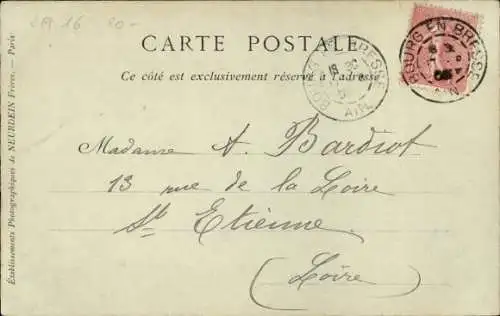 CARTE POSTALE
Ce côté est exclusivement réservé à l'adresse
BOURG EN BRESSE
AIN
BOURG EN BRESSE
AIN
Madame A. Bardiot
13 rue de la Loire
St Etienne
(Loire)
Établissements Photographiques de NEURDEIN Frères. — Paris